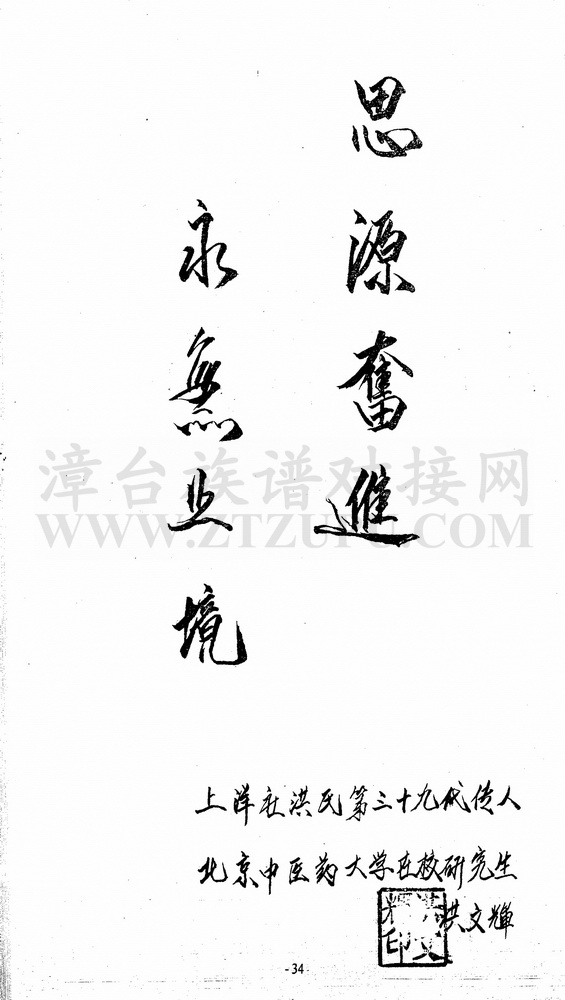 思源奮進
永無止境
漳台族谱对接网
WWW.ZTZUPU.COM
上洋社洪氏第三十九代传人
北京中医药大学在校研究生
洪文輝
洪文輝印
- 34